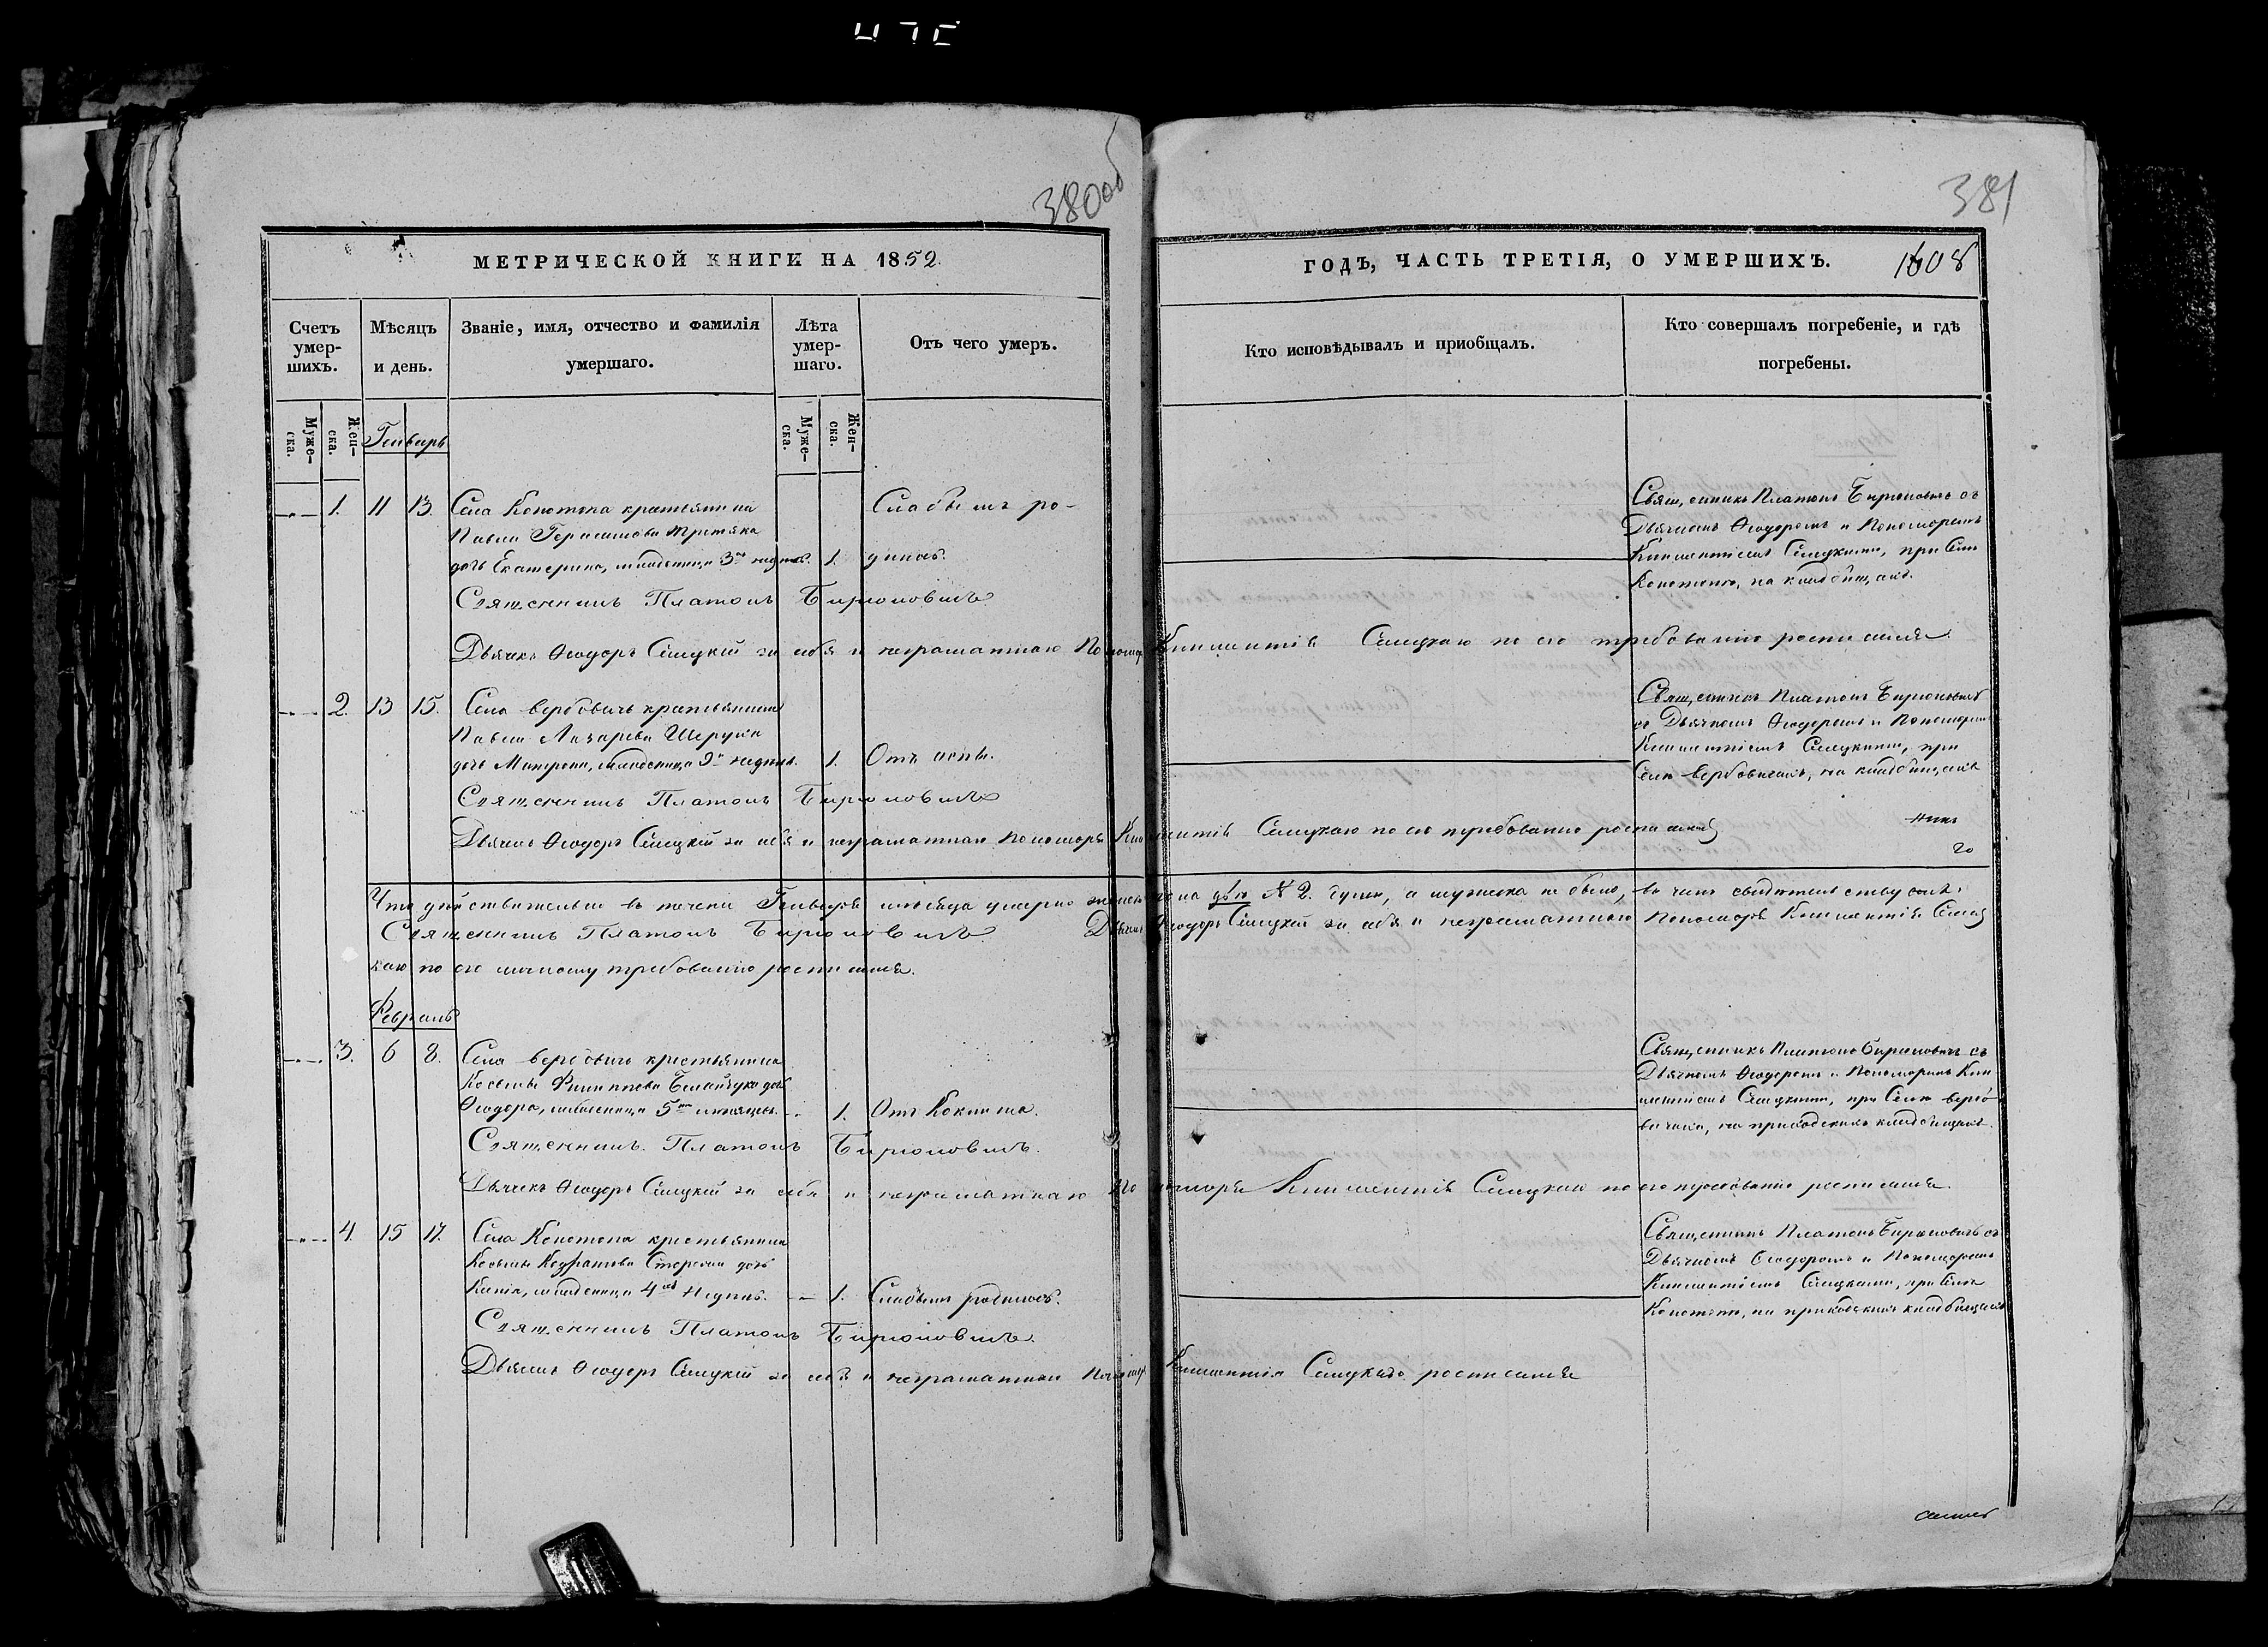 380 об
381
МЕТРИЧЕСКОЙ КНИГИ НА 1852.
ГОДЪ, ЧАСТЬ ТРЕТІЯ, О УМЕРШИХЪ.
1608
Счетъ умер-
шихъ.
Мѣсяцъ
и день.
Званіе, имя, отчество и фамилія
умершаго.
Лѣта умер-
шаго.
Отъ чего умеръ.
Кто исповѣдывалъ и приобщалъ.
Кто совершалъ погребеніе, и гдѣ
погребены.
Муже-
ска.
Жен-
ска.
Муже-
ска.
Жен-
ска.
Генварь
1. 11 13. Села Конотопа крестьянина
Павла Герасимова Третяка
дочь Екатерина, младеница 3хъ недѣль. 1.
Слабымъ ро-
дилась.
Священникъ Платонъ Бирюковичъ съ
Дьячкомъ Ѳеодоромъ и Пономаремъ
Климентіемъ Слицкими, при Селѣ
Конотопѣ, на кладбищахъ.
Священникъ Платонъ Бирюковичъ
Дьячекъ Ѳеодоръ Слицкій за себя и неграматнаго Пономаря Климентія Слицкаго по его требованію росписался
2. 13 15. Села Вербовичъ крестьянина
Павла Лазарева
дочь Матрона, младеница недѣль. 1. Отъ оспы.
Священникъ Платонъ Бирюковичъ
съ Дьячкомъ Ѳеодоромъ и Пономаремъ
Климентіемъ Слицкими, при
Селѣ Вербовичахъ, на кладбищахъ
Священникъ Платонъ Бирюковичъ
Дьячекъ Ѳеодоръ Слицкій за себя и неграматнаго Пономаря Климентія Слицкаго по его требованію росписался
Что дѣйствительно въ теченіи Генваря мѣсяца умерло женска пола двѣ № 2. души, а мужеска не было, въ чемъ свидѣтельствуемъ:
Священникъ Платонъ Бирюковичъ Дьячекъ Ѳеодоръ Слицкій за себя и неграматнаго Пономаря Климентія Слиц
каго по его личному требованію росписался.
Февраль
3. 6 8. Села Вербовичъ крестьянина
Космы Филиппова дочь
Ѳеодора, младеница 5ти мѣсяцевъ. 1. Отъ Коклюша.
Священникъ Платонъ Бирюковичъ съ
Дьячкомъ Ѳеодоромъ и Пономаремъ Кли
ментіемъ Слицкими, при Селѣ Вербо
вичахъ, на приходскихъ кладбищахъ.
Священникъ Платонъ Бирюковичъ.
Дьячекъ Ѳеодоръ Слицкій за себя и неграматнаго Пономаря Климентія Слицкаго по его требованію росписался.
4. 15 17. Села Конотопа крестьянина
Космы Кодратова дочь
младеница 4хъ недѣль. 1. Слабымъ родилась.
Священникъ Платонъ Бирюковичъ съ
Дьячкомъ Ѳеодоромъ и Пономаремъ
Климентіемъ Слицкими, при Селѣ
Конотопѣ, на приходскихъ кладбищахъ
Священникъ Платонъ Бирюковичъ.
Дьячекъ Ѳеодоръ Слицкій за себя и неграматнаго Пономаря Климентія Слицкаго росписался